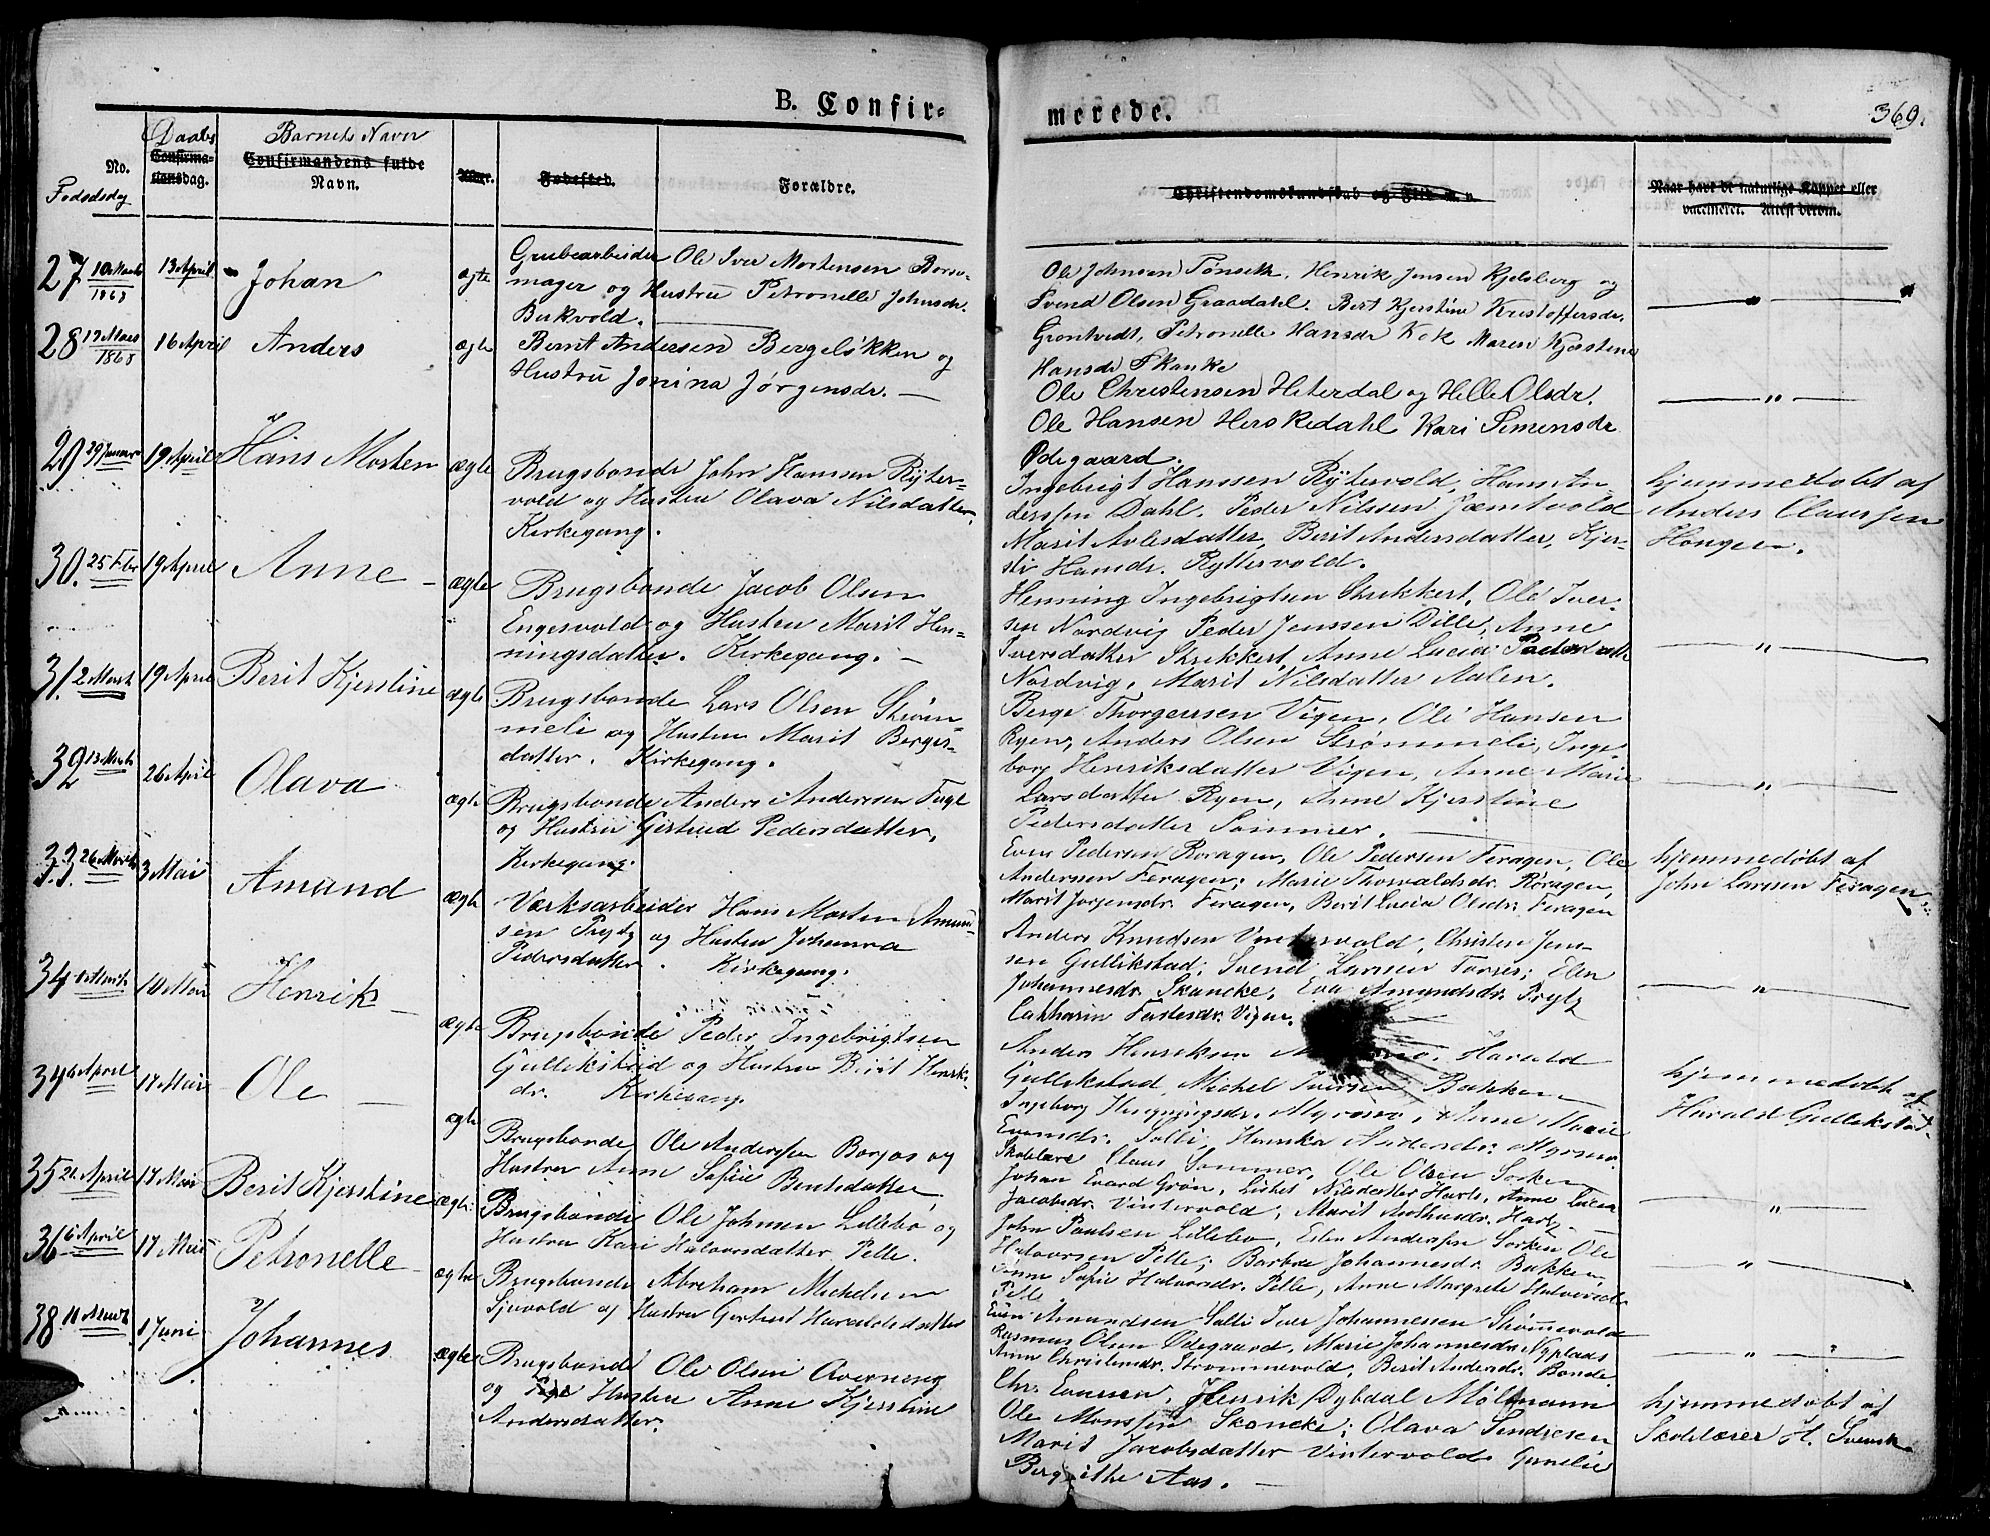 B. Confir=
merede.
369.
No.
Fødsdsdg
Daabs
Confirma-
tionsdag.
Barnets Navn
Confirmandens fulde
Navn.
Alder.
Fødested.
Forældre.
Christendomskundskab og Flid m. v.
Naar havt de naturlige Kopper eller
vaccineret. Attest derom.
27 10 Marts 1868
13 April
Johan
ægte
Grubearbeider Ole Iver Mortensen Borso-
mager og Hustru Petronelle Johnsdr.
Birkvold.
Ole Johnsen Tønseth, Henrik Jensen Kjelsberg og
Svend Olsen Graadahl. Berit Kjerstine Kristoffersdr.
Grøntvedt, Petronelle Hansdr Kok Maren Kjerstine
Hansdr Skanke
28 17 Mars 1868
16 April
Anders
ægte
Bernt Andersen Bergeløkken og
Hustru Jonina Jørgensdr.
Ole Christensen Hiterdal og Hille Olsdr.
Ole Hansen Herskedahl Kari Simensdr
Ødegaard.
29 29 Januar
19 April
Hans Morten
ægte
Brugsbonde John Hansen Ryter-
vold og Hustru Olava Nilsdatter,
Kirkegang.
Ingebrigt Hanssen Rytervold, Hans An-
derssen Dahl. Peder Nilssen Jæmtvold
Marit Avlesdatter, Berit Andersdatter, Kjer-
sti Hansdr. Ryttervold.
hjemmedøbt af
Anders Claussen
Hongen.
30. 25 Fbr
19 April
Anne
ægte
Brugsbonde Jacob Olsen
Engesvold og Hustru Marit Hen-
ningsdatter. Kirkegang.
Henning Ingebrigtsen Skrikkert, Ole Iver-
sen Nordvig Peder Jenssen Dille, Anne
Iversdatter Skrikkert, Anne Lucia Pedersdatter
Nordvig, Marit Nilsdatter Aalen.
31. 2 Marts
19 April
Berit Kjerstine
ægte
Brugsbonde Lars Olsen Strøm-
meli og Hustru Marit Berger-
datter. Kirkegang.
Berge Thorgersen Vigen, Ole Hansen
Ryen, Anders Olsen Strømmeli, Inge-
borg Henriksdatter Vigen, Anne Marie
Larsdatter Ryen, Anne Kjerstine
Pedersdatter Sommer.
32 13 Marts
26 April
Olava
ægte
Brugsbonde Anders Andersen Fugl
og Hustru Gertrud Pedersdatter,
Kirkegang.
Even Pedersen Roragen, Ole Pedersen Feragen, Ole
Andersen Feragen; Marie Thorvaldsdr. Røragen,
Marit Jørgensdr. Feragen, Berit Lucia Olsdr. Feragen
hjemmedøbt af
John Larssen Feragen
33. 26 Marts
3 Mai
Amund
ægte
Værksarbeider Hans Morten Amund-
sen Prytz og Hustru Johanna
Pedersdatter. Kirkegang.
Anders Knudsen Vintervold, Christen Jens-
sen Gullikstad; Svend Larsen Torres; Elen
Johannesdr. Skancke, Eva Amundsdr. Prytz
Catharin Fastesdr. Vigen.
34 Marts
10 Mai
Henrik
ægte
Brugsbonde Peder Ingebrigtsen
Gullikstad og Hustru Berit Henrik-
dr. Kirkegang.
Anders Henriksen Harald
Gullikstad, Michel Iversen Bakken
Ingeborg Henningsdr. Myrmo, Anne Marie
Evensdr. Galli, Hanska Andersdr. Myrmo.
hjemmedøbt af
Harald Gullikstad.
34 6 April
17 Mai
Ole
ægte
Brugsbonde Ole Anderssen Borgos og
Hustru Anne Sofie Bentsdatter
Skolelære Claus Sommer, Ole Olsen Sorken
Johan Evard Grøn, Lisbet Nilsdatter Harts, Anne Lucia
Jacobsdr. Vintervold, Marit Mathisdr. Hartz
35 21 April
17 Mai
Berit Kjerstine
ægte
Brugsbonde Ole Johnsen Lillebo og
Hustru Kari Halvorsdatter Pelle.
John Paulsen Lillebo, Eden Anderssen Sorken Ole
Halvorsen Pelle; Barbra Johannesdr. Bakken,
Anne Sofie Halvorsdr. Pelle, Anne Margrete Halvorsdr.
Pelle
36 6 April
17 Mai
Petronelle
ægte
Brugsbonde Abraham Michelsen
Sjevold og Hustru Gertrud Haraldsdatter
Even Amundsen Galli Iver Johannessen Strømmevold
Rasmus Olsen Ødegaard, Marie Johannesdr. Nyplads
Anne Christensdr. Strømmevold, Berit Andersdr. Bonde.
38 11 Marts
1 Juni
Johannes
ægte
Brugsbonde Ole Olsen Averneng
og Hustru Anne Kjerstine
Andersdatter.
Chr. Evensen, Henrik Dybdal Møllmann
Ole Monssen Skancke; Olava Sendresen
Marit Jacobsdatter Vintervold Cornelie
Bergithe Aas.
hjemmedøbt af
Skolelærer H. Svensk